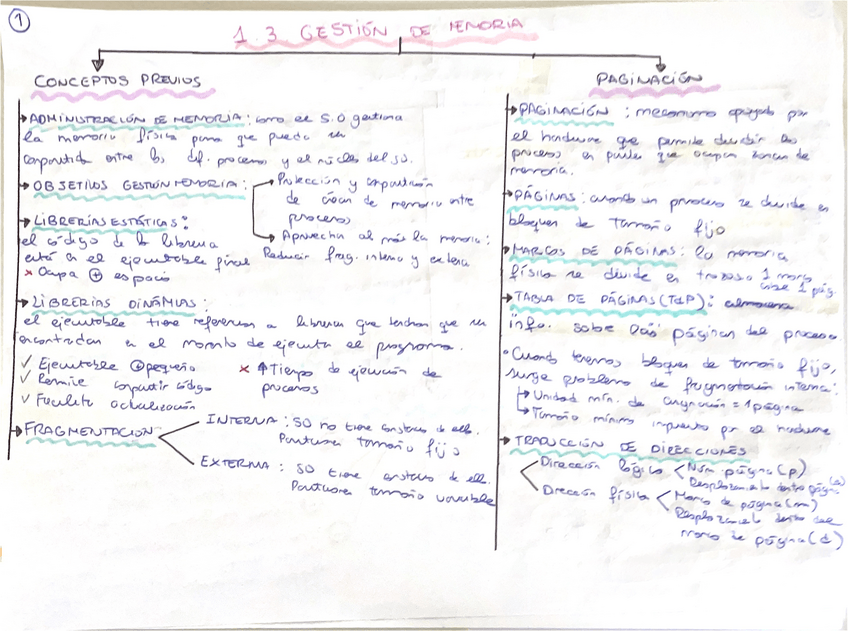 1
1.3. GESTIÓN DE MEMORIA
CONCEPTOS PREVIOS
→ ADMINISTRACIÓN DE MEMORIA: como el S.O gestiona
la memoria física para que pueda ser
compartida entre los dif. procesos y el núcleo del SO.
→ OBJETIVOS GESTIÓN MEMORIA:
→ Protección y compartición
de áreas de memoria entre
procesos
→ Aprovechar al máx la memoria:
Reducir frag. interna y externa
→ LIBRERÍAS ESTÁTICAS:
el código de la librería
está en el ejecutable final
x Ocupa ⊕ espacio
→ LIBRERIAS DINÁMIAS:
el ejecutable tiene referencias a librerías que tendrán que ser
encontradas en el momento de ejecutar el programa.
✓ Ejecutable ⊕ pequeño
✓ Permite compartir código
✓ Facilita actualización
x ↑ Tiempo de ejecución de
procesos
→ FRAGMENTACIÓN
INTERNA: SO no tiene constancia de ella.
Particiones tamaño fijo
EXTERNA: SO tiene constancia de ella.
Particiones tamaño variable
PAGINACIÓN
→ PAGINACIÓN: mecanismo apoyado por
el hardware que permite dividir los
procesos en partes que ocupan zonas de
memoria.
→ PÁGINAS: cuando un proceso se divide en
bloques de tamaño fijo
→ MARCOS DE PÁGINAS: la memoria
física se divide en trozos. 1 marco
cabe 1 pág.
→ TABLA DE PÁGINAS (TdP):
info. sobre las páginas del proceso.
• Cuando tenemos bloques de tamaño fijo,
surge problema de fragmentación interna:
→ Unidad mín. de asignación = 1 página
→ Tamaño mínimo impuesto por el hardware
→ TRADUCCIÓN DE DIRECCIONES
Dirección lógica < Núm página (p)
Desplazamiento dentro página (d)
Dirección física < Marco de página (m)
Desplazamiento dentro del
marco de página (d)